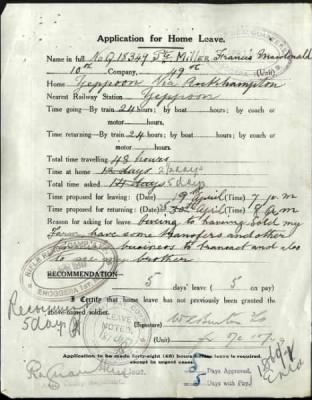 Application for Home Leave.
Name in full No Q18349 Pte Miller Francis Macdonald
10th Company, 49th (Unit)
Home Yeppoon Via Rockhampton
Nearest Railway Station Yeppoon
Time going—By train 24 hours; by boat hours; by coach or
motor hours.
Time returning—By train 24 hours; by boat hours; by coach or
motor hours.
Total time travelling 48 hours
Time at home days
Total time asked 14 days 5 days
Time proposed for leaving: (Date) 19 April (Time) 7 p.m
Time proposed for returning: (Date) April (Time)
Reason for asking leave: owing to having sold my
Farm have some transfers and other
business to transact and also
to see my brother
RECOMMENDATION—
5 days' leave ( 5 on pay)
I Certify that home leave has not previously been granted the
above-named soldier.
(Signature)
Recommended
5 days
LEAVE
NOTED
Lieut.
Application to be made forty-eight (48) hours before leave is required,
except in urgent cases.
5 Days Approved.
5 Days with Pay.